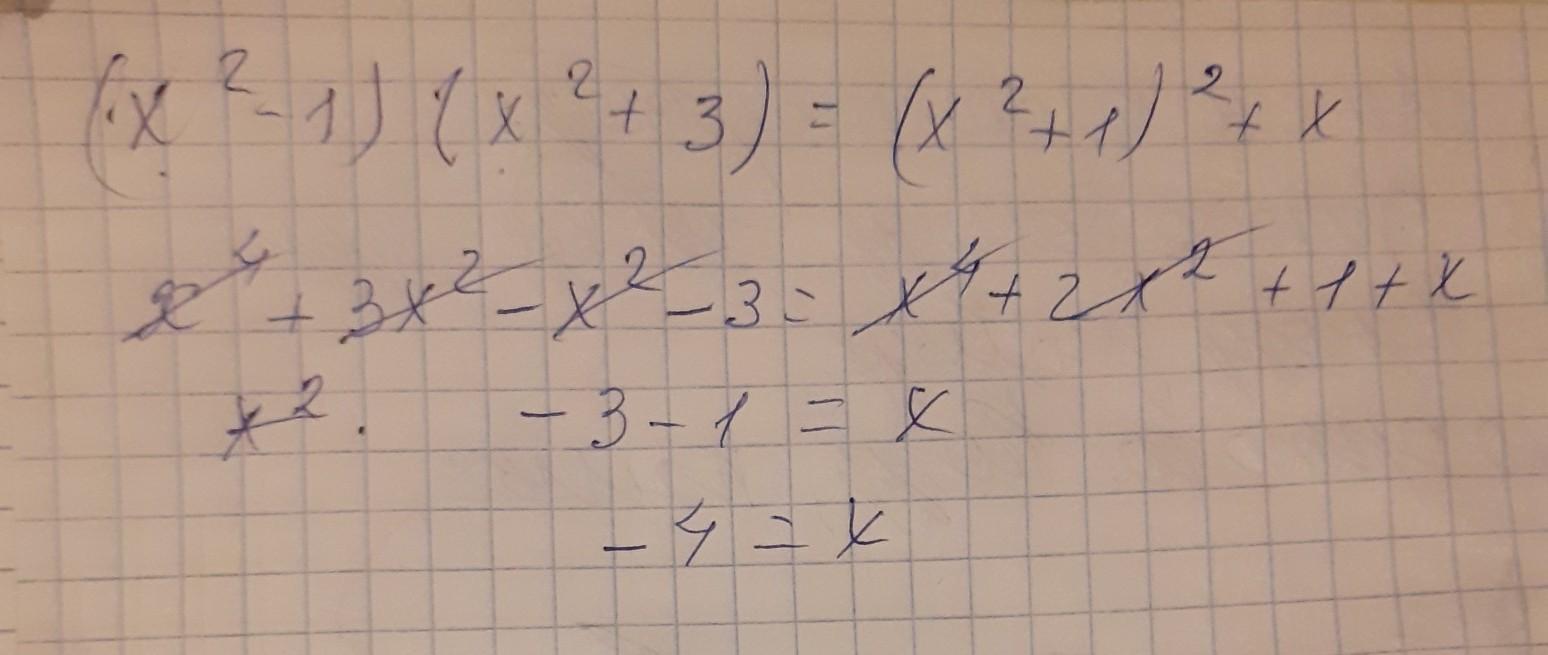 (x²-1)(x²+3)=(x²+1)²+x
x⁴+3x²-x²-3=x⁴+2x²+1+x
x². -3-1=x
-4=x